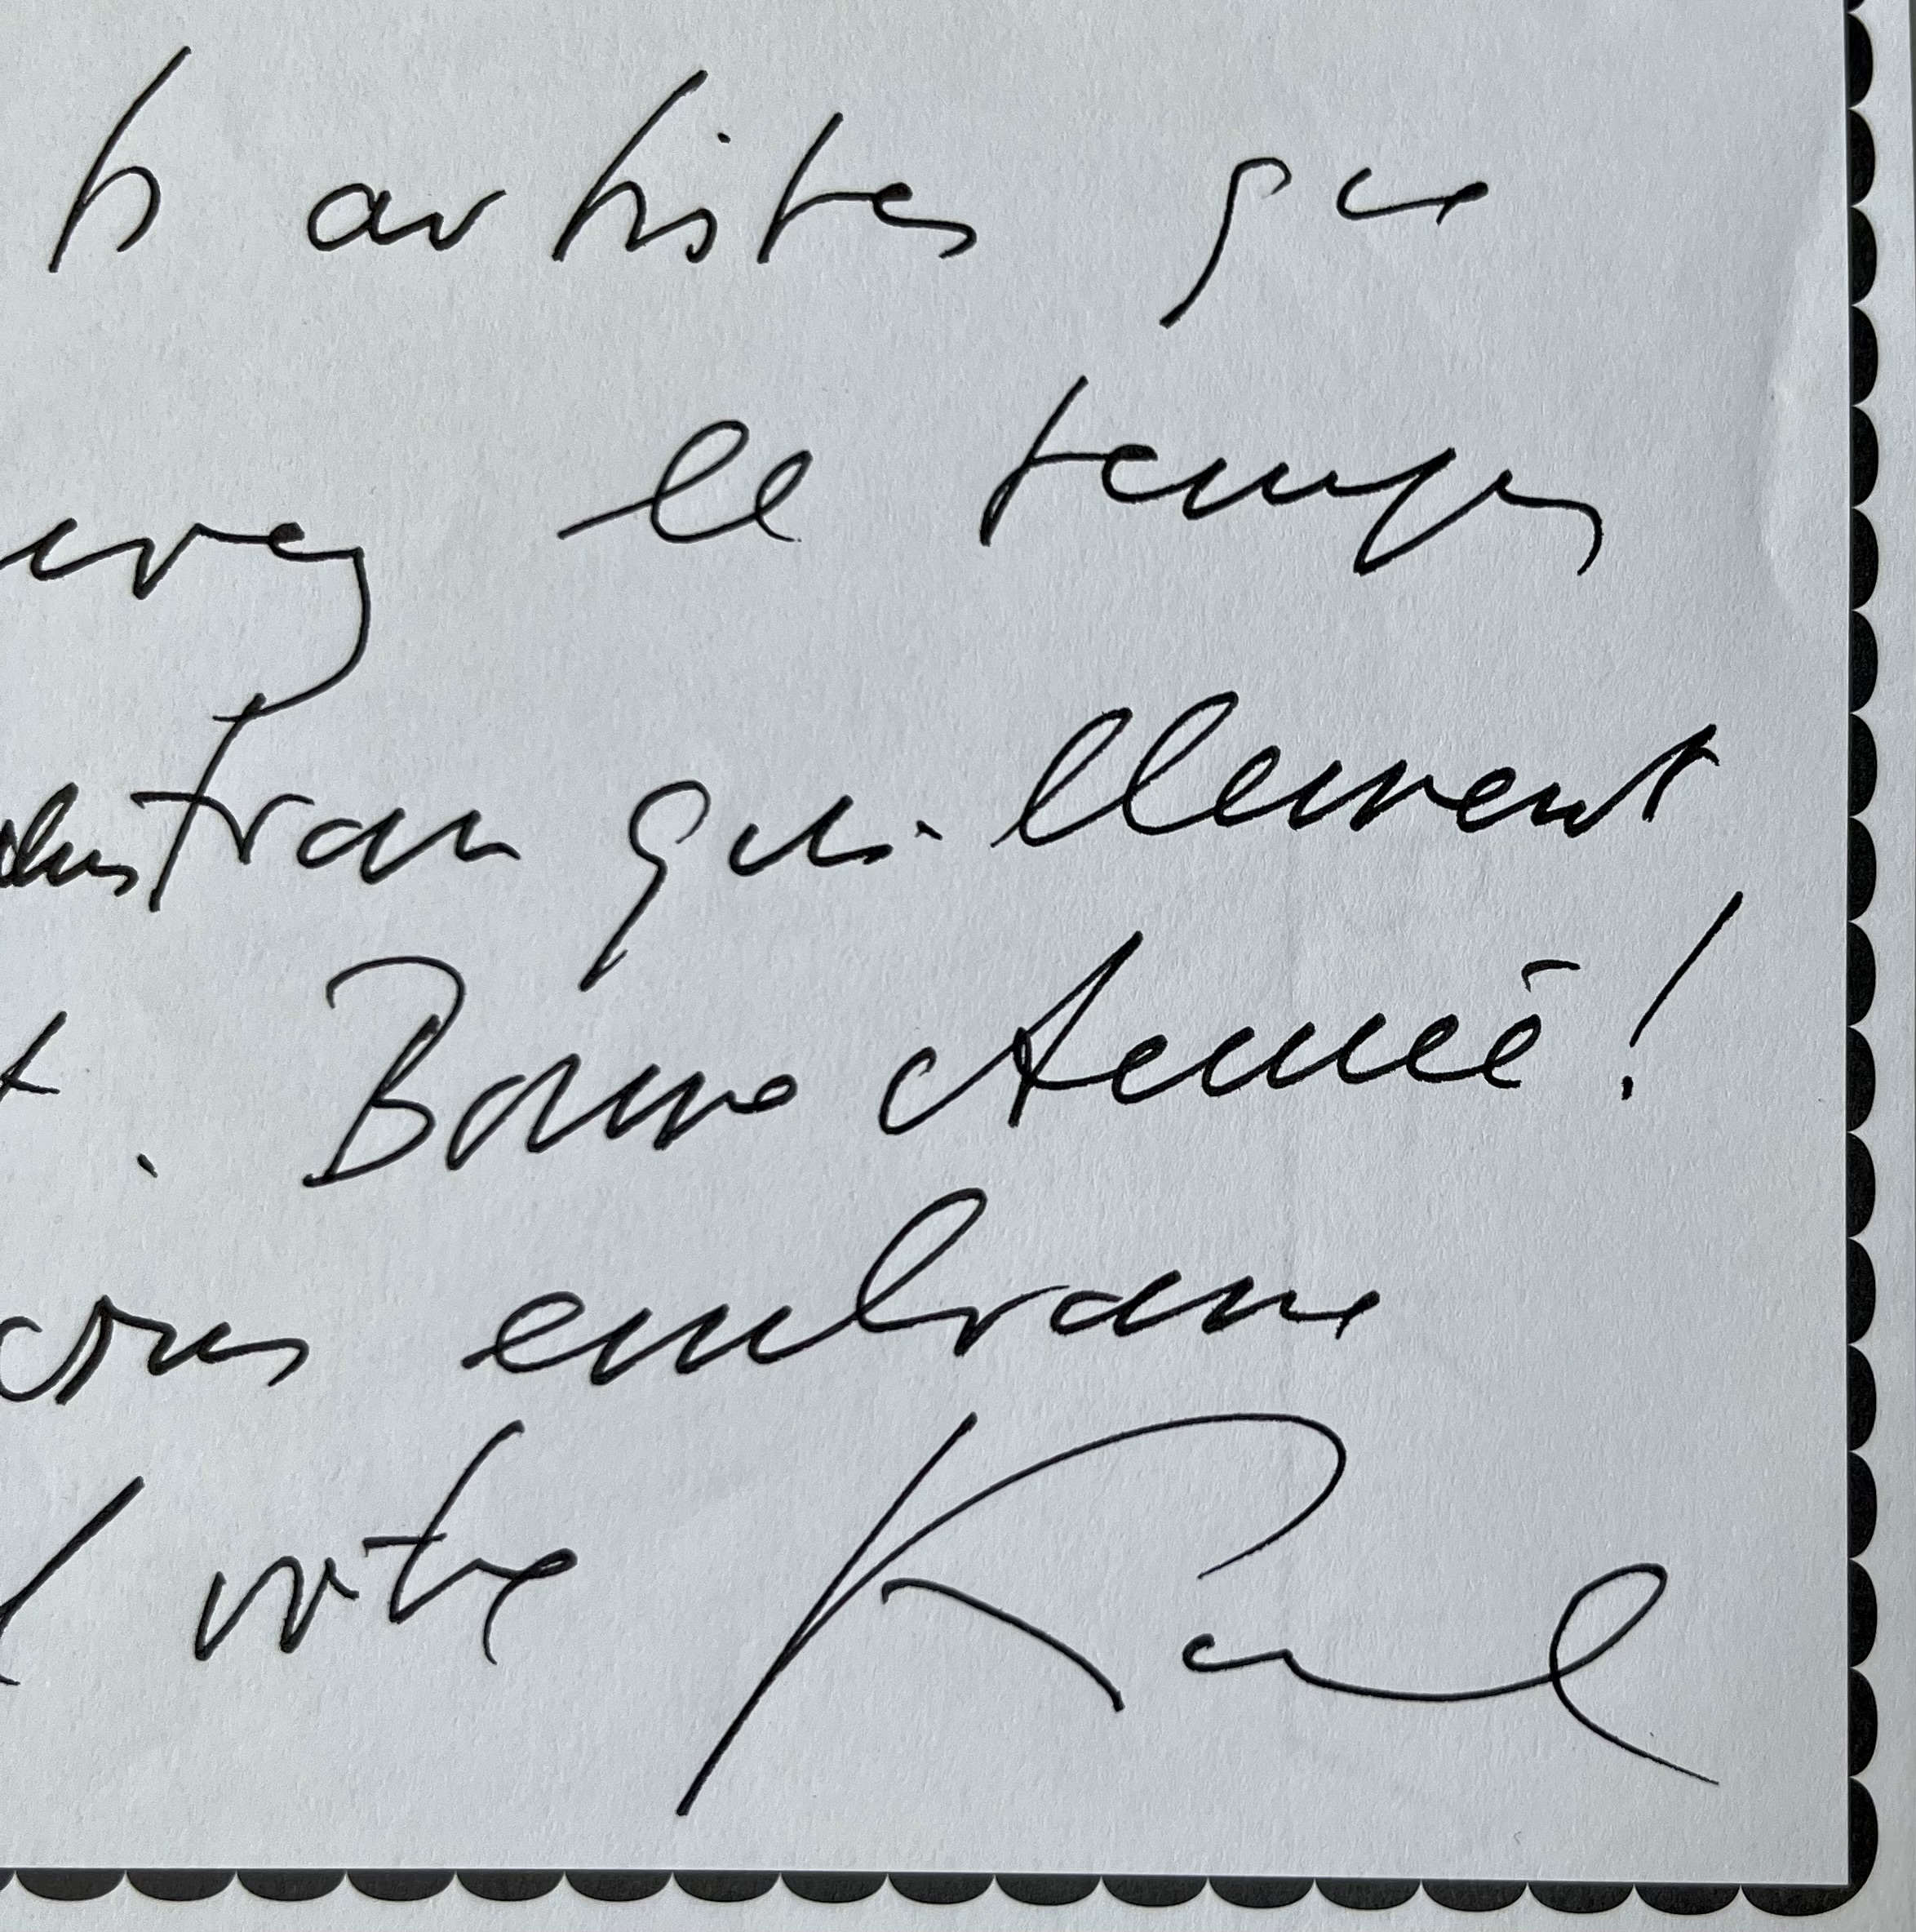 ts artistes que
uvez le temps
plus tranquillement
t. Bonne Année!
vous embrasse
votre Karl